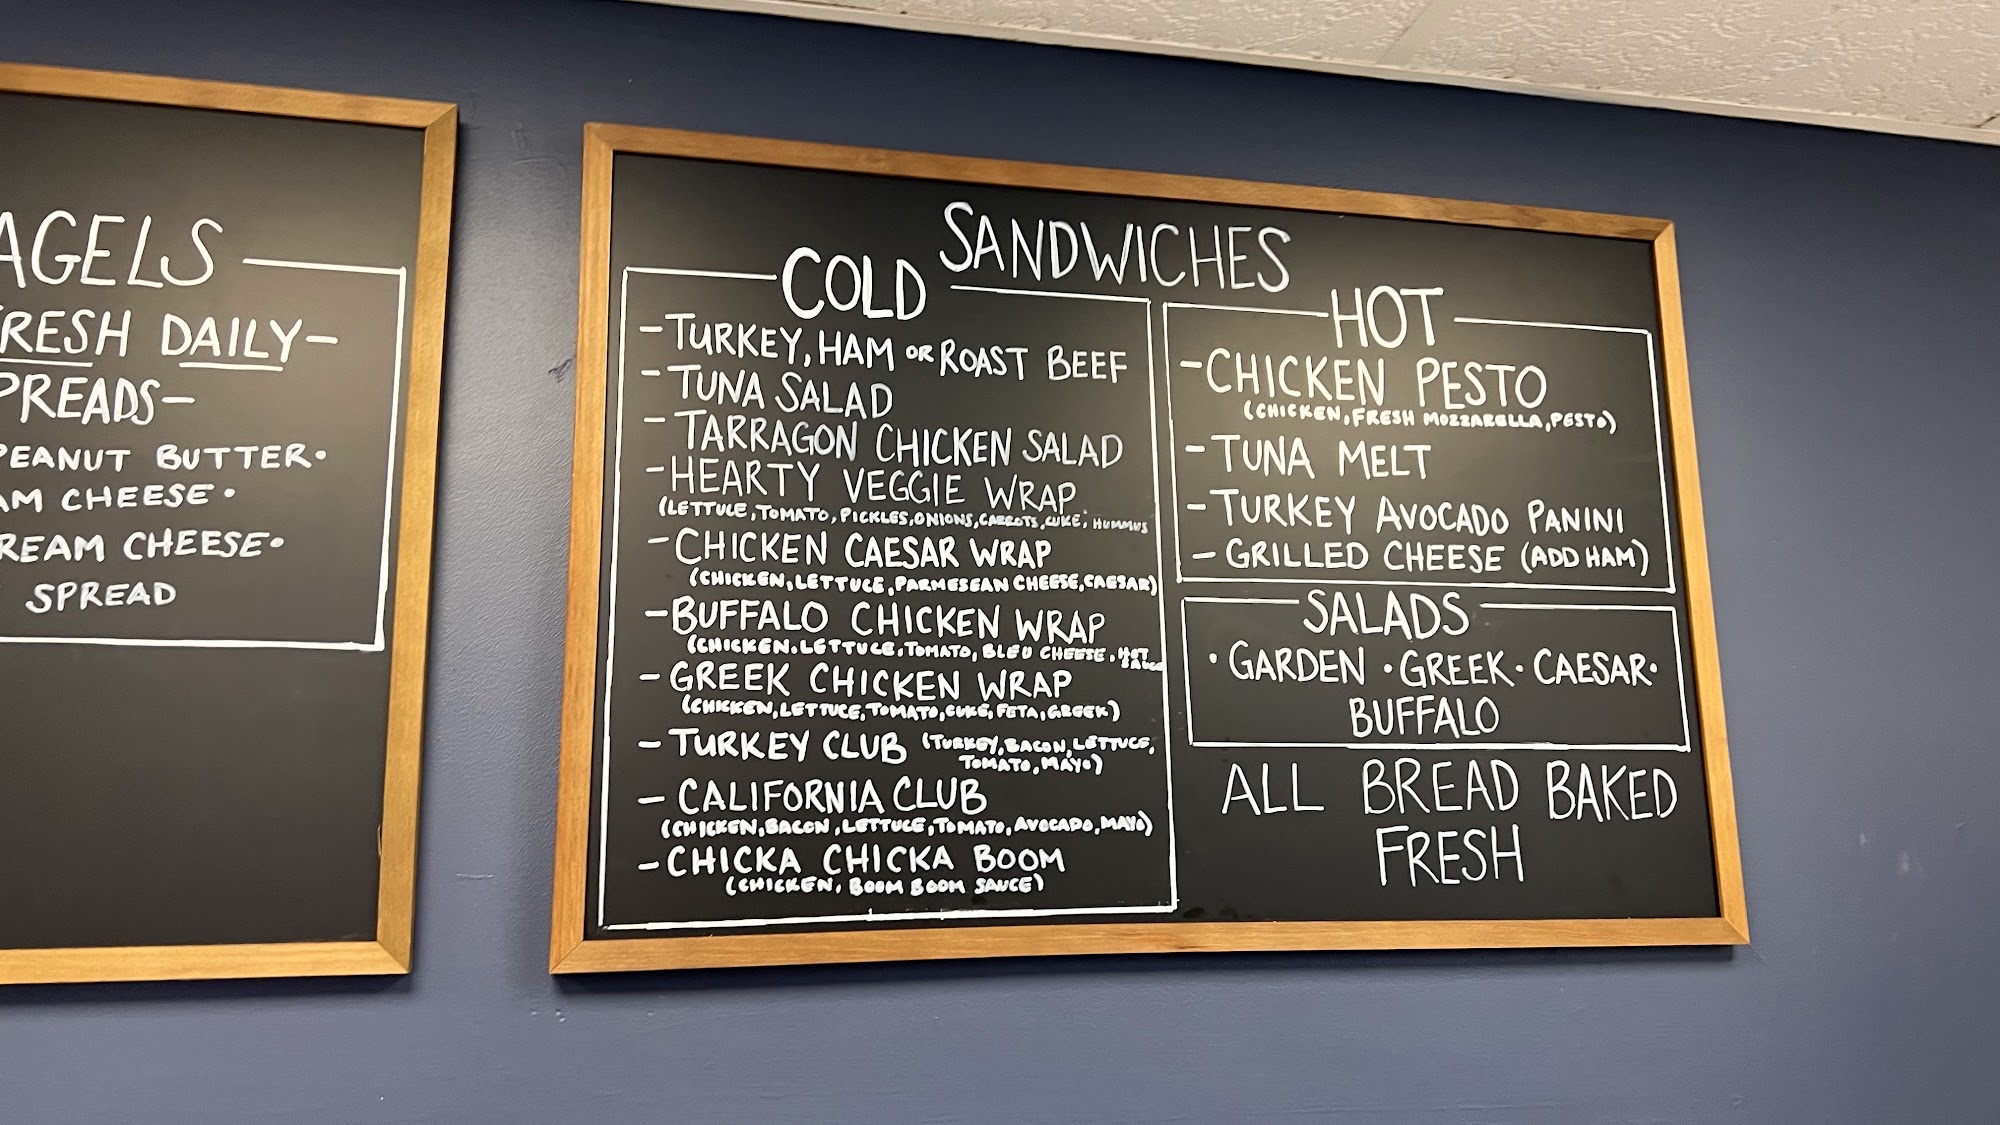 AGELS
RESH DAILY-
PREADS-
PEANUT BUTTER•
AM CHEESE•
REAM CHEESE•
SPREAD
SANDWICHES
COLD
-TURKEY, HAM OR ROAST BEEF
-TUNA SALAD
-TARRAGON CHICKEN SALAD
-HEARTY VEGGIE WRAP
(LETTUCE, TOMATO, PICKLES, ONIONS, CARROTS, CUKE, HUMMUS
-CHICKEN CAESAR WRAP
(CHICKEN, LETTUCE, PARMESEAN CHEESE, CAESAR)
-BUFFALO CHICKEN WRAP
(CHICKEN. LETTUCE. TOMATO, BLEU CHEESE, HOT
SAUCE
-GREEK CHICKEN WRAP
(CHICKEN, LETTUCE, TOMATO, CUKE, FETA, GREEK)
-TURKEY CLUB (TURKEY, BACON, LETTUCE,
TOMATO, MAYO)
-CALIFORNIA CLUB
(CHICKEN, BACON, LETTUCE, TOMATO, AVOCADO, MAYO)
-CHICKA CHICKA BOOM
(CHICKEN, BOOM BOOM SAUCE)
HOT
-CHICKEN PESTO
(CHICKEN, FRESH MOZZARELLA, PESTO)
-TUNA MELT
-TURKEY AVOCADO PANINI
-GRILLED CHEESE (ADD HAM)
SALADS
•GARDEN •GREEK• CAESAR•
BUFFALO
ALL BREAD BAKED
FRESH